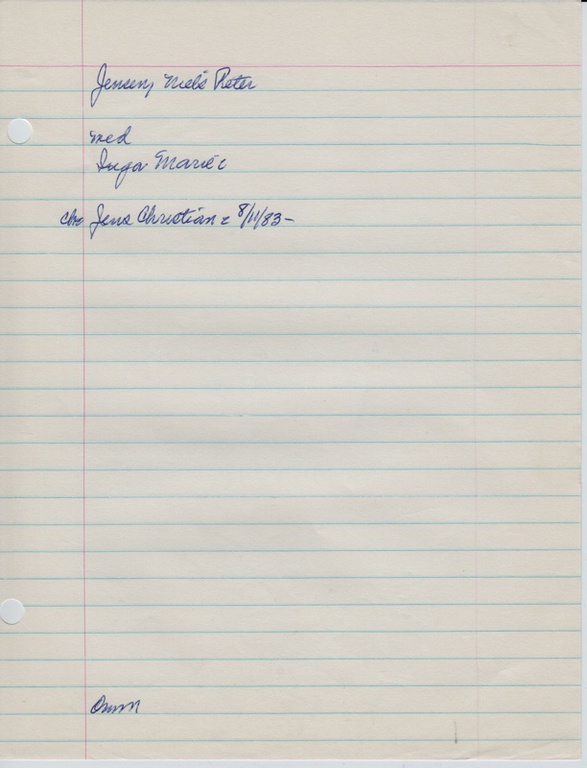 Jensen, Niels Peter
med
Inga Marie
chr Jens Christian = 8/11/83-